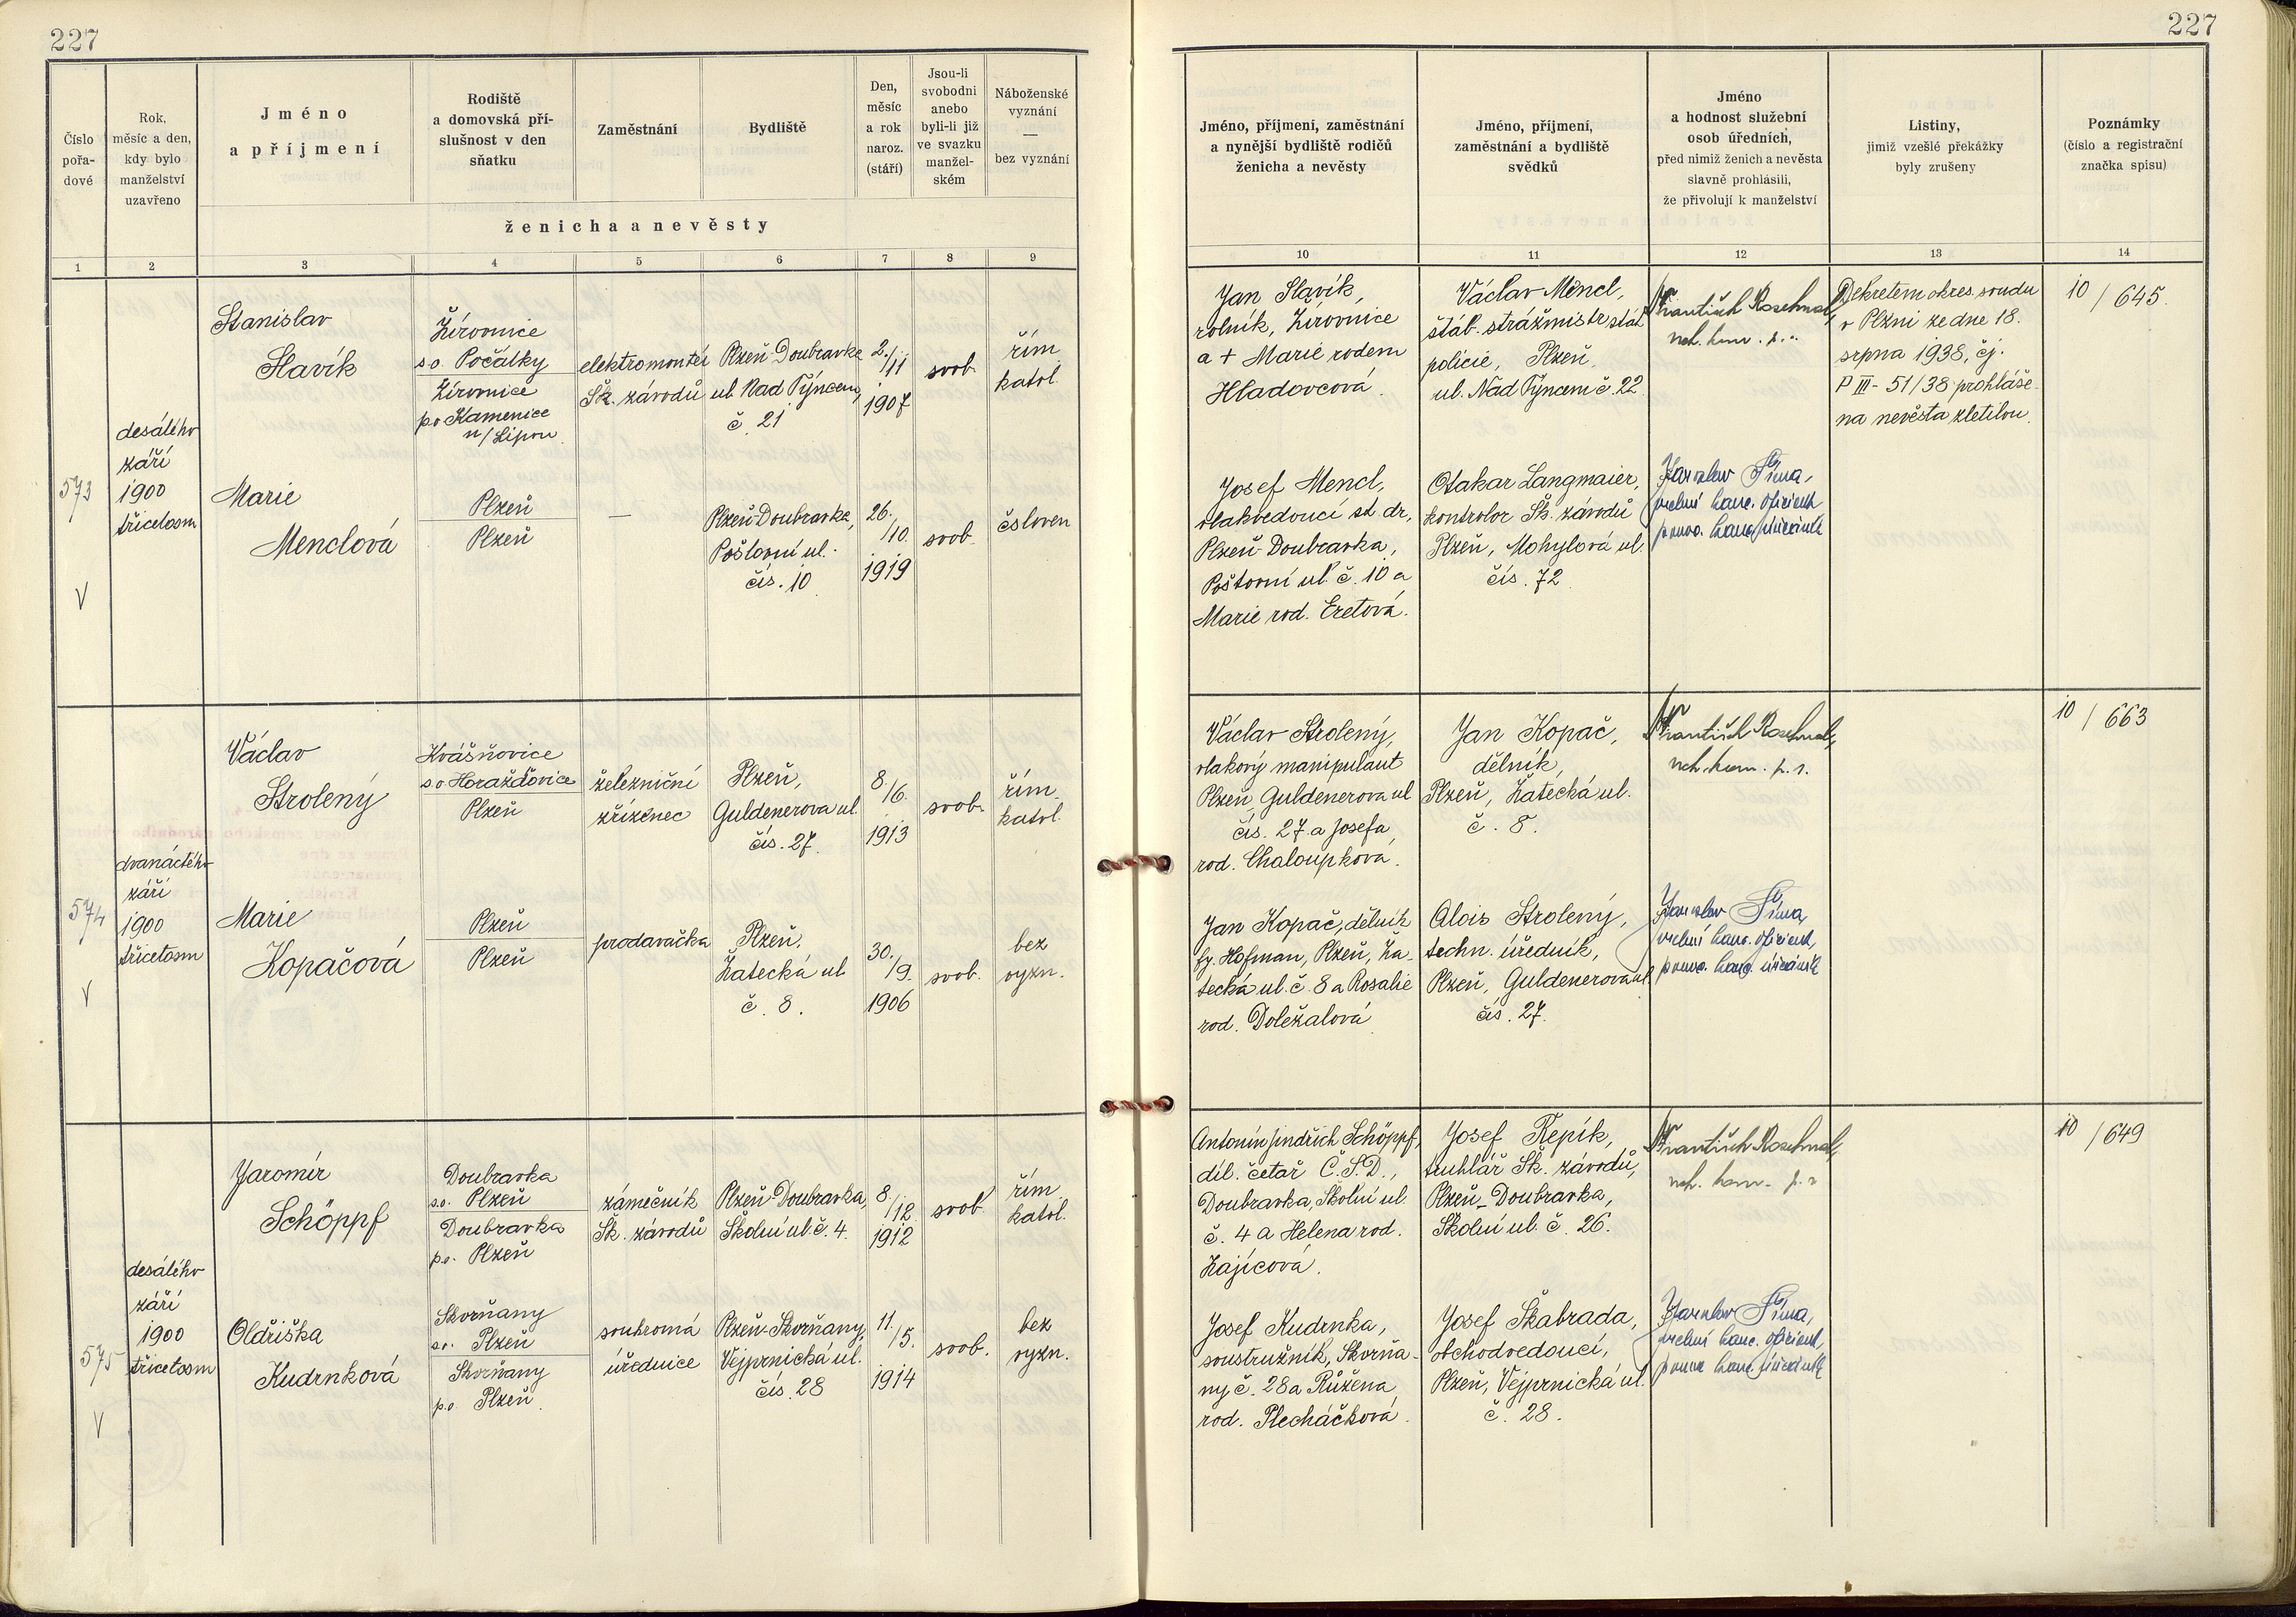 227
227
Číslo
pořa-
dové
Rok,
měsíc a den,
kdy bylo
manželství
uzavřeno
Jméno
a příjmení
Rodiště
a domovská pří-
slušnost v den
sňatku
Zaměstnání
Bydliště
Den,
měsíc
a rok
naroz.
(stáří)
Jsou-li
svobodni
anebo
byli-li již
ve svazku
manžel-
ském
Náboženské
vyznání
—
bez vyznání
ženicha a nevěsty
1 2 3 4 5 6 7 8 9
Jméno, příjmení, zaměstnání
a nynější bydliště rodičů
ženicha a nevěsty
Jméno, příjmení,
zaměstnání a bydliště
svědků
Jméno
a hodnost služební
osob úředních,
před nimiž ženich a nevěsta
slavně prohlásili,
že přivolují k manželství
Listiny,
jimiž vzešlé překážky
byly zrušeny
Poznámky
(číslo a registrační
značka spisu)
10 11 12 13 14
573
V
desátého
září
1900
třicetosm
Stanislav
Slavík
Žirovnice
s.o. Počátky
Žirovnice
p.o. Kamenice
n/Lipou
elektromontér
Šk. závodů
Plzeň-Doubravka
ul. Nad Týncem,
č. 21
2./11
1907
svob.
řím.
katol.
Marie
Menclová
Plzeň
Plzeň
—
Plzeň-Doubravka,
Poštovní ul.
čís. 10
26.
/10.
1919
svob.
čsloven
Jan Slavík,
rolník, Žirovnice
a + Marie rodem
Hladovcová.
Václav Mencl,
štáb. strážmistr stát.
policie, Plzeň,
ul. Nad Týncem č. 22
František
Dekretem okres. soudu
v Plzni ze dne 18.
srpna 1938, čj.
P III - 51/38 prohláše-
na nevěsta zletilou.
10/645.
Josef Mencl,
vlakvedoucí st. dr.,
Plzeň-Doubravka,
Poštovní ul. č. 10 a
Marie rod. Eretová.
Otakar Langmaier,
kontrolor Šk. závodů
Plzeň, Mohylová ul.
čís. 72
Jaroslav Šíma,
574
V
dvanáctého
září
1900
třicetosm
Václav
Strolený
Kvášňovice
s.o. Horažďovice
Plzeň
železniční
zřízenec
Plzeň,
Guldenerova ul.
čís. 27.
8./6.
1913
svob.
řím.
katol.
Marie
Kopačová
Plzeň
Plzeň
prodavačka
Plzeň,
Žatecká ul.
č. 8.
30./9.
1906
svob.
bez
vyzn.
Václav Strolený,
vlakový manipulant
Plzeň, Guldenerova ul.
čís. 27. a Josefa
rod. Chaloupková.
Jan Kopač,
dělník,
Plzeň, Žatecká ul.
č. 8.
František
10/663
Jan Kopač, dělník
fy. Hofman, Plzeň, Ža-
tecká ul. č. 8 a Rosalie
rod. Doležalová
Alois Strolený,
techn. úředník,
Plzeň, Guldenerova ul.
čís. 27.
Jaroslav Šíma,
575
V
desátého
září
1900
třicetosm
Jaromír
Schöppf
Doubravka
s.o. Plzeň
Doubravka
p.o. Plzeň
zámečník
Šk. závodů
Plzeň-Doubravka,
Školní ul. č. 4.
8./12.
1912
svob.
řím.
katol.
Oldřiška
Kudrnková
Skvrňany
s.o. Plzeň
Skvrňany
p.o. Plzeň
soukromá
úřednice
Plzeň-Skvrňany,
Vejprnická ul.
čís. 28
11./5.
1914
svob.
bez
vyzn.
Antonín Jindřich Schöppf,
díl. četař Č.S.D.,
Doubravka, Školní ul.
č. 4 a Helena rod.
Zajícová.
Josef Řepík,
truhlář Šk. závodů,
Plzeň-Doubravka,
Školní ul. č. 26.
František
10/649
Josef Kudrnka,
soustružník, Skvrňa-
ny č. 28 a Růžena
rod. Plecháčková.
Josef Škabrada,
obchodvedoucí,
Plzeň, Vejprnická ul.
č. 28.
Jaroslav Šíma,